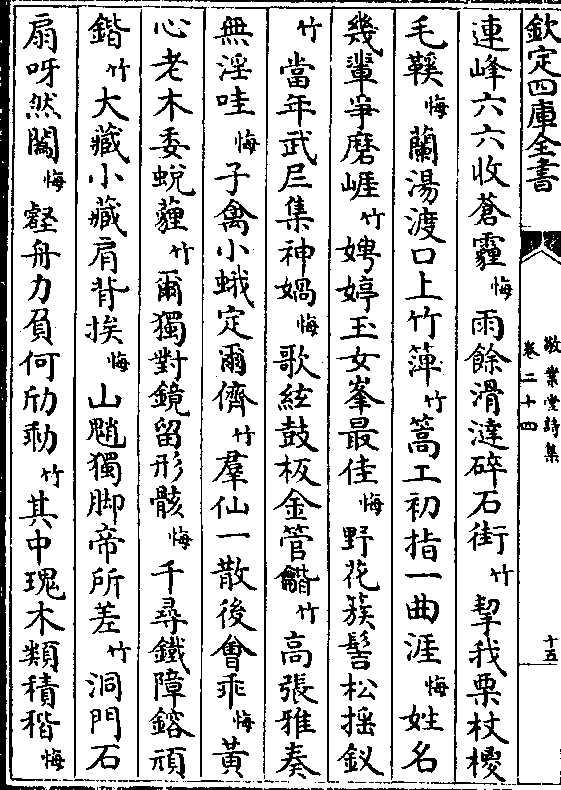 欽定四庫全書
敬業堂詩集
卷二十四
十五
連峰六六收蒼霾悔雨餘滑澾碎石街竹挈我栗杖椶
毛鞵悔蘭湯渡口上竹簰竹篙工初指一曲涯悔姓名
幾輩爭磨崕竹娉婷玉女峯最佳悔野花簇髻松揺釵
竹當年武𡰥集神媧悔歌絃鼓板金管龤竹高張雅奏
無淫哇悔子禽小蛾定爾儕竹羣仙一散後㑹乖悔黃
心老木委蛻薶竹爾獨對鏡留形骸悔千尋鐵障鎔頑
鍇竹大藏小藏肩背挨悔山魈獨脚帝所差竹洞門石
扇呀然闔悔壑舟力負何劤勤竹其中瑰木類積稭悔